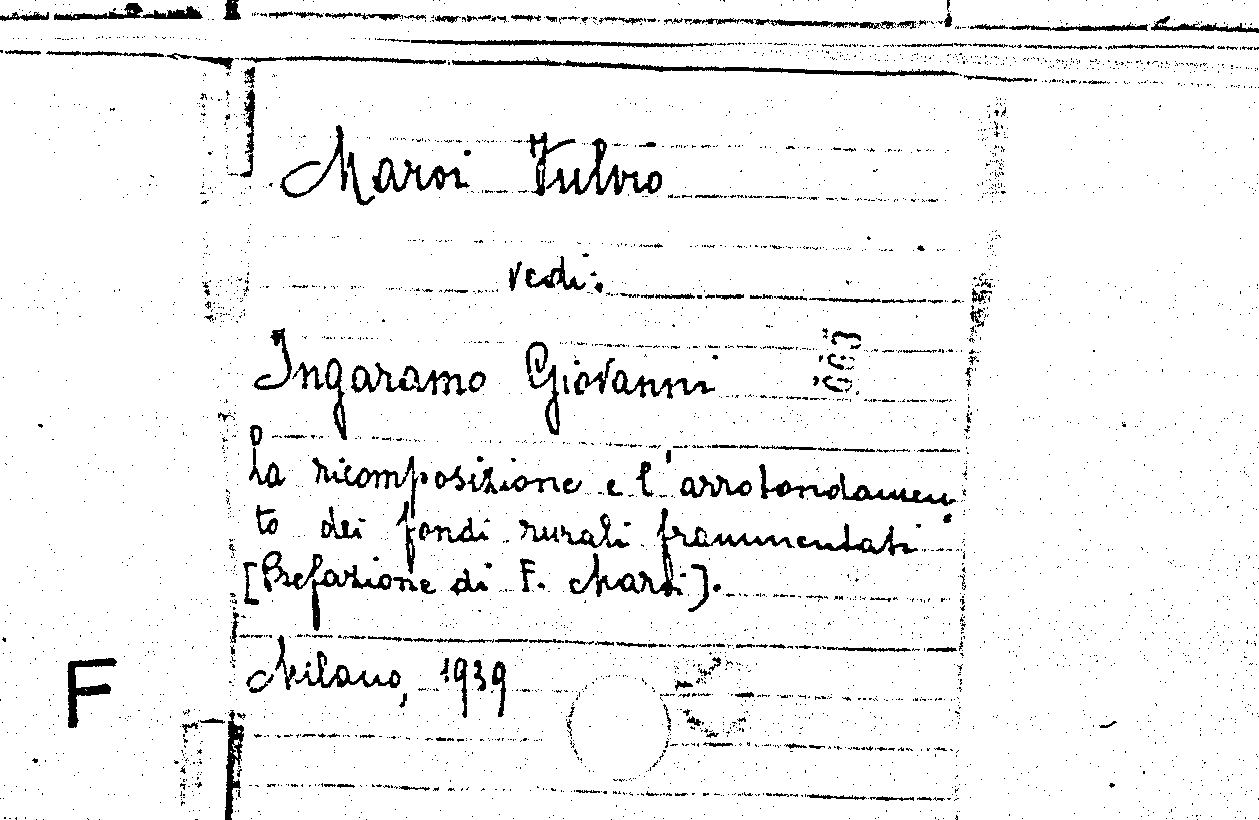 Maroi Fulvio
vedi:
Ingaramo Giovanni
La ricomposizione e l'arrotondamen
to dei fondi rurali frammentati.
[Prefazione di F. Maroi].
Milano, 1939
F